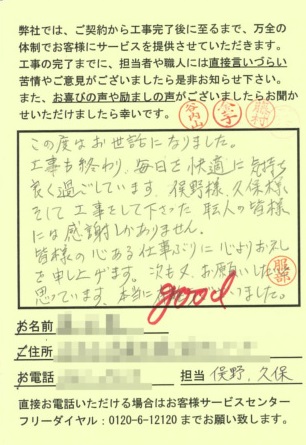 弊社では、ご契約から工事完了後に至るまで、万全の
体制でお客様にサービスを提供させていただきます。
工事の完了までに、担当者や職人には直接言いづらい
苦情やご意見がございましたら是非お知らせ下さい。
また、お喜びの声や励ましの声がございましたらお聞
かせいただけましたら幸いです。
この度はお世話になりました。
工事も終わり、毎日を快適に気持ち
良く過ごしています。俣野様、久保様
そして工事をして下さった職人の皆様
には感謝しかありません。
皆様の心ある仕事ぶりに心よりお礼
を申し上げます。次も又、お願いしたいと
思っています。本当に
ました。
good
服部
お名前
ご住所
お電話
担当 俣野、久保
直接お電話いただける場合はお客様サービスセンター
フリーダイヤル：0120-6-12120までお願い致します。